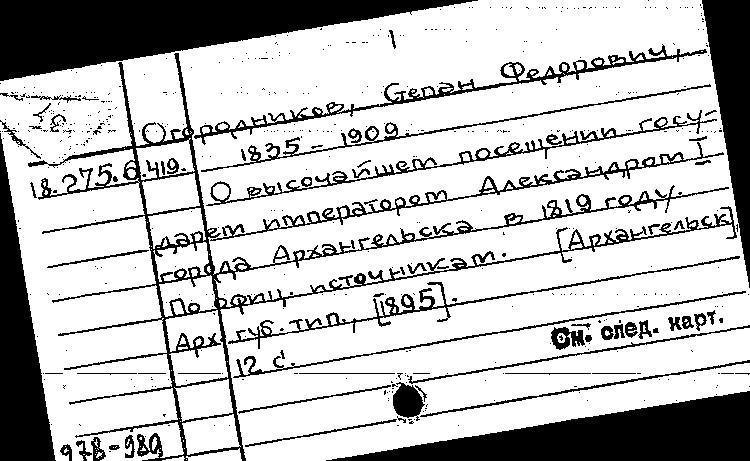 Огородников, Степан Федорович,
18.275.6.419. 1835 – 1909.
О высочайшем посещении госу-
дарем императором Александром I
города Архангельска в 1819 году.
По офиц. источникам. [Архангельск]
Арх. губ. тип., [1895].
12 с.
См. след. карт.
978-980